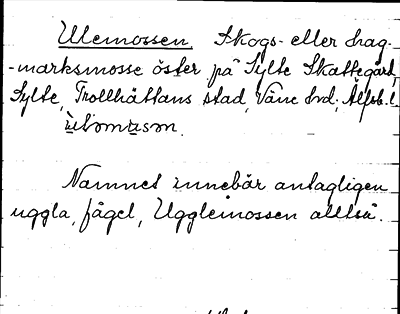 Ulemossen, Skogs- eller hag-
-marksmosse öster på Sylte Skattegård,
Sylte, Trollhättans stad, Väne hrd, Älfsb. l.
Namnet innebär antagligen
uggla, fågel, Uggleinossen alltså.